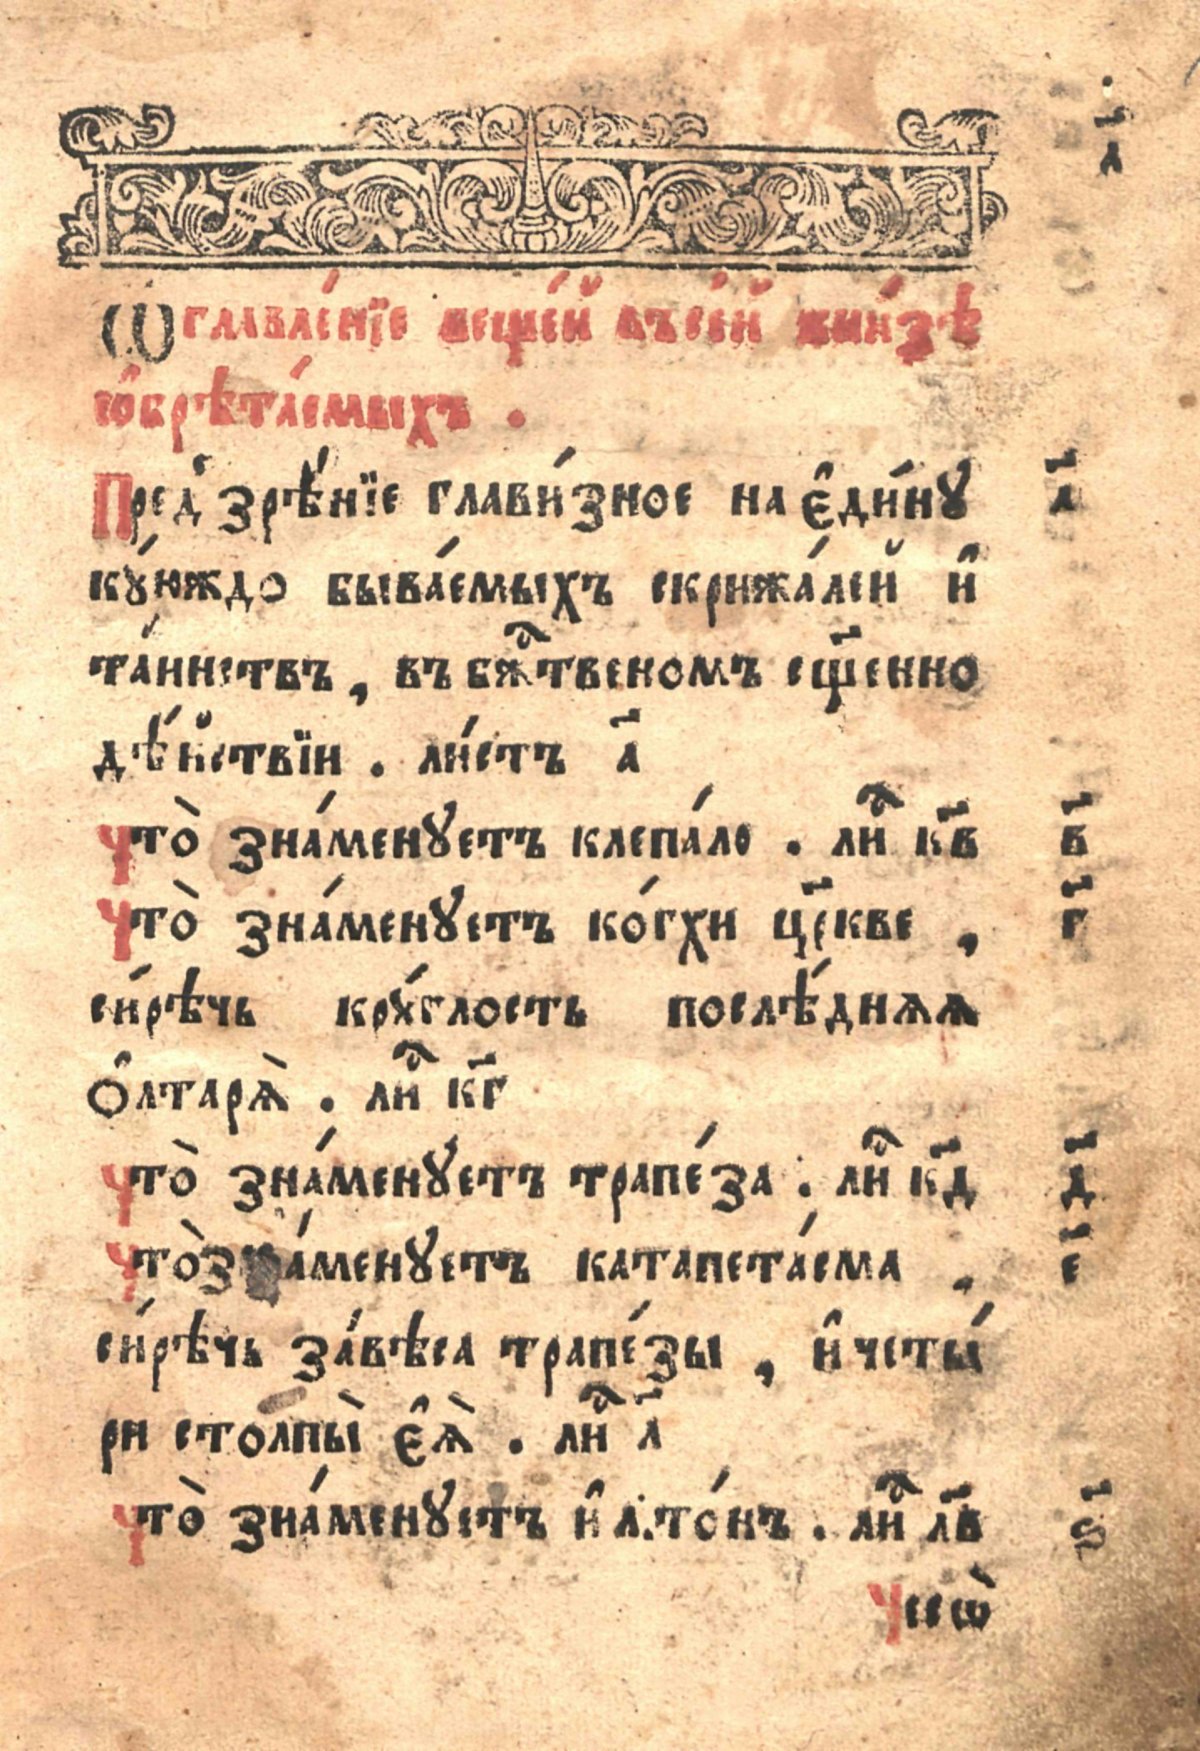 а҃
Ѡглавле́нїе веще́й въ се́й кни́зѣ
ѡ҆брѣта́емыхъ .
Пред̾зрѣ́нїе глави́зное на є҆ди́нꙋ а҃
кꙋ́юждо быва́емыхъ скрижа́лей и҆
та́инствъ, въ бж҃твеномъ сщ҃енно
дѣ́йствїи . ли́стъ а҃
что̀ зна́менꙋетъ клепа́ло . лиⷭ҇ к҃в в҃
что̀ зна́менꙋетъ ко́гхи цр҃кве , г҃
си́рѣчь крꙋ́глость послѣ́дняя
ѻ҆лтарѧ̀ . лиⷭ҇ к҃г
что̀ зна́менꙋетъ трапе́за . лиⷭ҇ к҃д д҃
что̀ зна́менꙋетъ катапета́сма , е҃
си́рѣчь за́вѣса трапе́зы , и҆ четы́
ри столпы̀ є҆ѧ̀ . лиⷭ҇ л҃
что̀ зна́менꙋетъ и҆лито́нъ . лиⷭ҇ л҃в ѕ҃
чесѡ̀